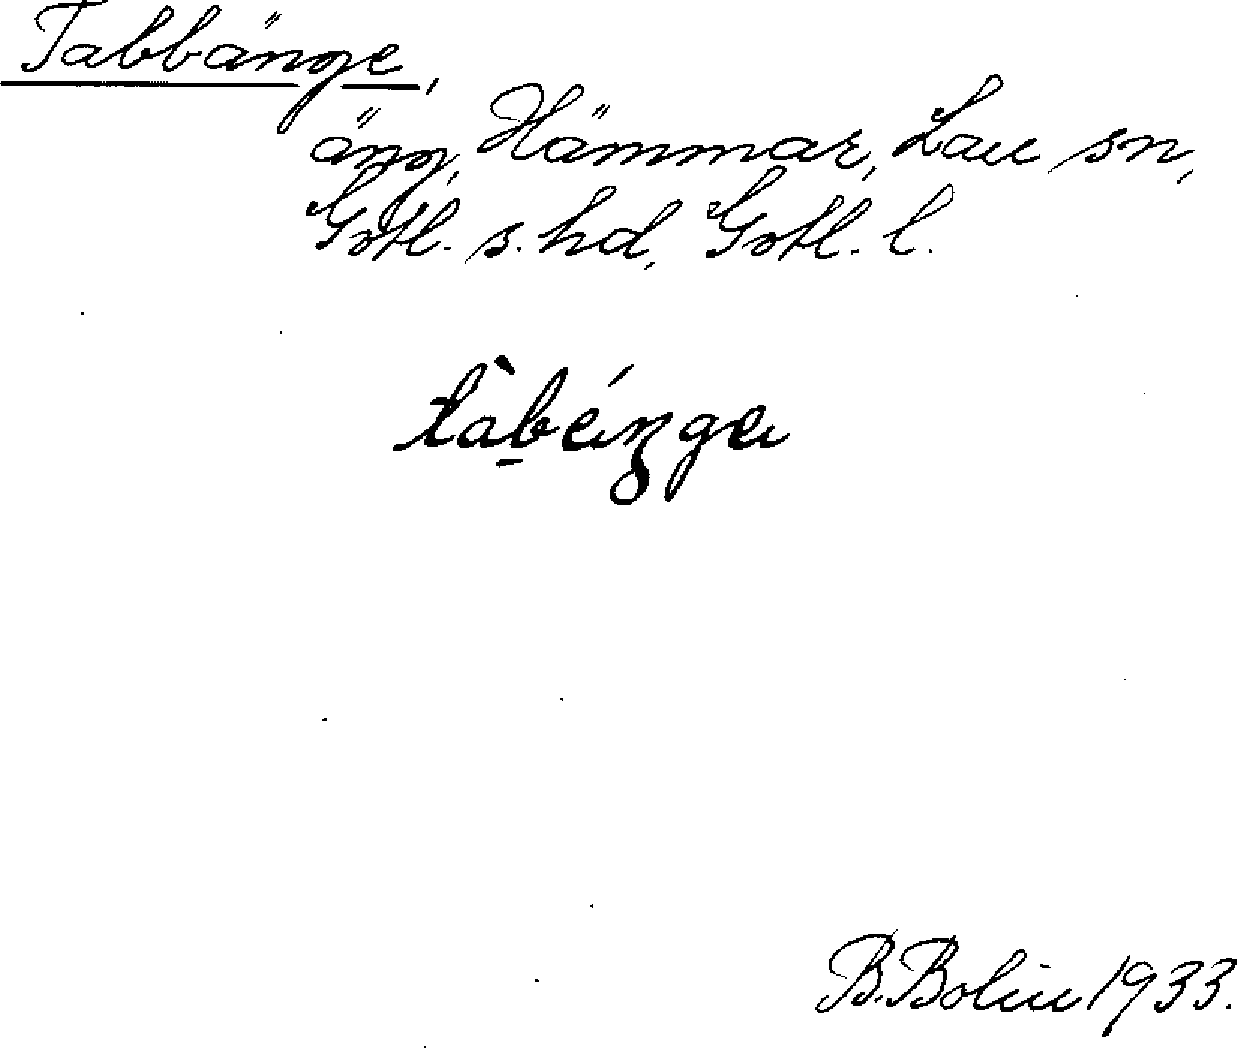 Tabbänge,
äng, Hämmar, Lau sn,
Gotl. s. hd, Gotl. l.
B. Bolin 1933.